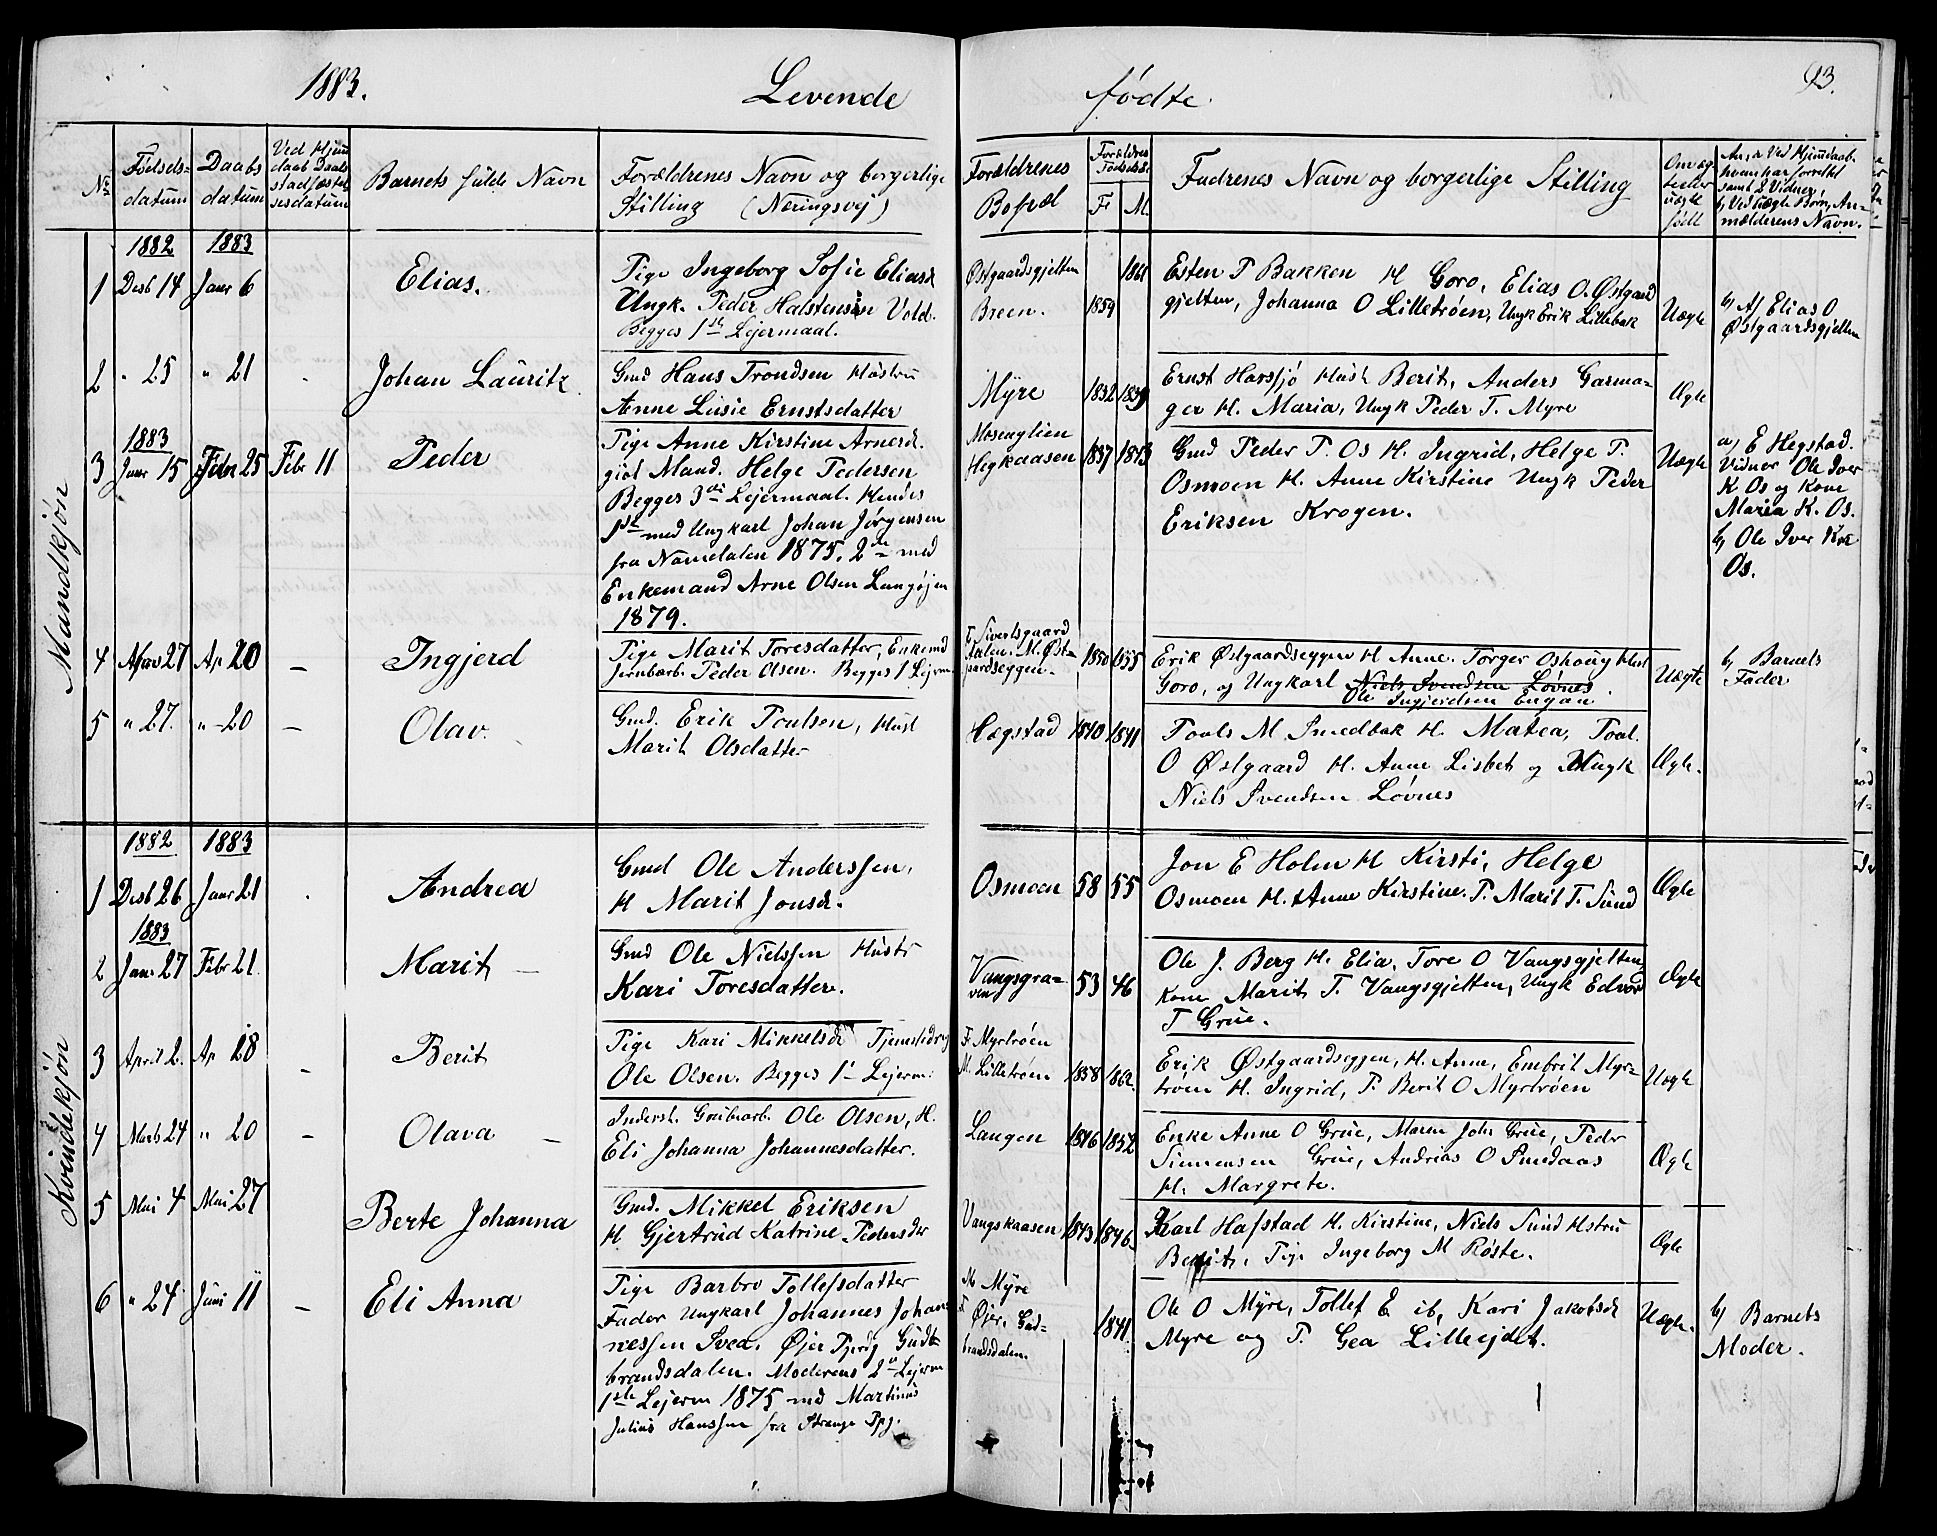 1883. Levende fødte. 93.
No Fødsels- datum Daabs datum Ved Hjem daab Daabs stadfæstel sesdatum Barnets fulde Navn Forældrenes Navn og borgerlige Stilling (Næringsvej) Forældrenes Bopæl Forældres Fødselsår F. M. Fadrenes Navn og borgerlige Stilling Om æg te eller uægte født An, a Ved Hjemdaab hvem har forrettet samt 2 Vidner, b, Ved Uægte Børn, An- mælderens Navn.
Mandkjøn
1882 1883
1 Desb 14 Janr 6 Elias.
Pige Ingeborg Sofie Eliasd
Ungk. Peder Halstensen Vold.
Begges 1ste Lejermaal.
Østgaardsgjelten 1861
Breen. 1859
Esten P Bakken H Goro, Elias O. Østgaard
gjelten, Johanna O Lilletrøen, Ungk Erik Lillebak
Uægte
b, Af Elias O
Østgaardsgjelten
2 " 25 " 21 Johan Lauritz
Gmd Hans Trondsen Hustru
Anne Lusie Ernstsdatter
Myre 1832 1839
Ernst Harsjø Hust Berit, Anders Garma-
ger H. Maria, Ungk Peder T. Myre
Ægte
1883
3 Janr 15 Febr 25 Febr 11 Peder
Pige Anne Kirstine Arnesd.
gift Mand. Helge Pedersen
Begges 3die Lejermaal. Hendes
1ste med Ungkarl Johan Jørgensen
fra Namdalen 1875. 2de med
Enkemand Arne Olsen Langøjen
1879.
Mosenglien
Hegkaasen 1837 1843
Gmd Peder P. Os H. Ingrid, Helge P.
Osmoen H. Anne Kirstine Ungk Peder
Eriksen Krogen.
Uægte
a, E Hegstad.
Vidner Ole Iver
K Os og Kone
Maria K. Os.
b, Ole Iver K
Os.
4 27 Ap 20 — Ingjerd
Pige Marit Toresdatter, Enkemd
Jernbarb. Peder Olsen. Begges 1 Lejerm.
F. Sivertsgaard
dalen. M. Øst-
gaardseggen. 1850 1855
Erik Østgaardseggen H Anne. Torger Oshaug Hust
Goro, og Ungkarl Niels Svendsen Løvnes.
Ole Ingjerdsen Engan
Uægte
b, Barnets
Fader
5 " 27. " 20 — Olav.
Gmd. Erik Poulsen, Hust
Marit Olsdatter
Hægstad 1840 1841
Pouls M. Smedbak H. Matea, Poul.
O Østgaard H. Anne Lisbet og Ungk
Niels Svendsen Løvnes
Ægte.
Kvindekjøn
1882 1883
1 Desb 26 Janr 21 Andrea
Gmd Ole Anderssen,
H Marit Jonsd.
Osmoen 58 55
Jon E Holen H Kirsti, Helge
Osmoen H. Anne Kirstine. P. Marit T. Sund
Ægte
1883
2 Janr 27 Febr 21. Marit —
Gmd Ole Nielssen Hustr
Kari Toresdatter.
Vangsgra-
ven 53 46
Ole J. Berg H. Elia. Tore O Vangsgjelten,
Kone Marit T. Vangsgjelten, Ungk Edvard
T Grue.
Ægte
3 April 2. Ap 28 — Berit
Pige Kari Mikkelsd Tjenestedrg
Ole Olsen. Begges 1ste Lejerm.
F. Myrtrøen
M. Lilletrøen 1858 1862.
Erik Østgaardseggen, H. Anne, Embrit Myr-
trøen H. Ingrid, P. Berit O Myrtrøen
Uægte
4 Marts 24 " 20 — Olava —
Inderst. Grubearb. Ole Olsen, H.
Eli Johanna Johannesdatter.
Langen 1846 1852
Enke Anne O Grue, Maren Johs Grue, Peder
Simensen Grue, Andrias O Sundaas
H. Margrete.
Ægte
5 Mai 4 Mai 27 Berte Johanna
Gmd. Mikkel Eriksen
H Gjertrud Katrine Pedersdtr
Vangskaasen 1843 1846.
Karl Hafstad H. Kirstine, Niels Sund Hstru
Berit, Pige Ingeborg M Røste.
Ægte
6 " 24 Juni 11 — Eli Anna
Pige Barbro Tollefsdatter
Fader Ungkarl Johannes Johan
nessen Svea. Øjer Pgjeldg Gudt
brandsdalen. Moderens 2de Lejerm
1ste Lejerm 1875 med Martinus
Julius Hanssen fra Strange Pgj.
M. Myre
F. Øjer, Gud-
brandsdalen. 1841.
Ole O Myre, Tollef E ib, Kari Jakobsd
Myre og P. Gea Lilleejdet.
Uægte.
b, Barnets
Moder.